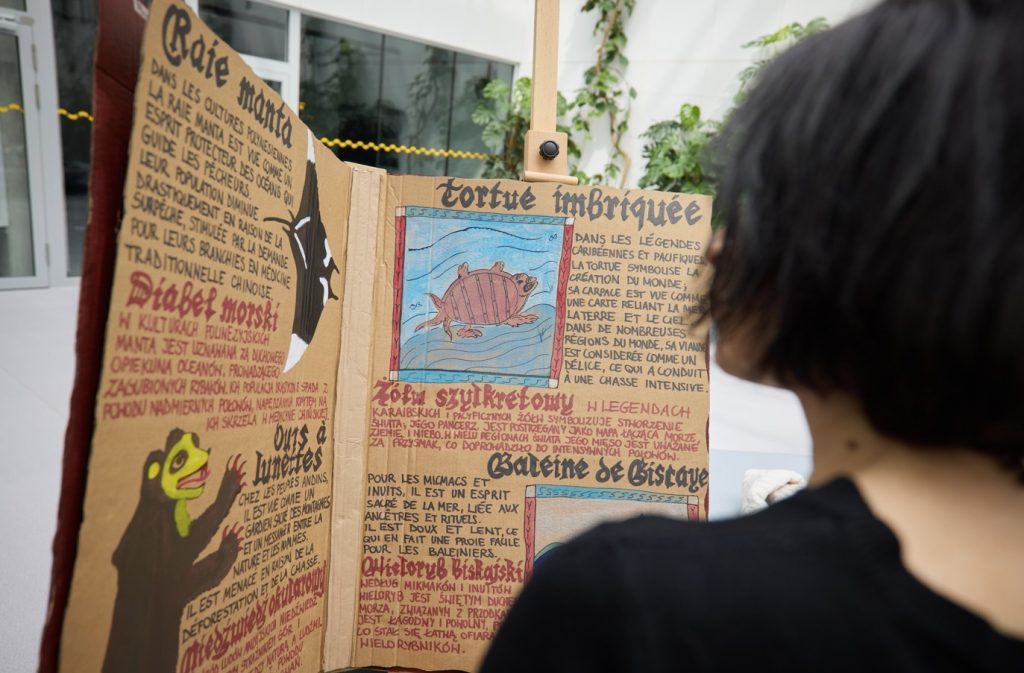 Raie manta
DANS LES CULTURES POLYNÉSIENNES
LA RAIE MANTA EST VUE COMME UN
ESPRIT PROTECTEUR DES OCÉANS QUI
GUIDE LES PÊCHEURS
LEUR POPULATION DIMINUE
DRASTIQUEMENT EN RAISON DE LA
SURPÊCHE, STIMULÉE PAR LA DEMANDE
POUR LEURS BRANCHIES EN MÉDICINE
TRADITIONNELLE CHINOISE.
Diabeł morski
W KULTURACH POLINEZYJSKICH
MANTA JEST UZNAWANA ZA DUCHOWEGO
OPIEKUNA OCEANÓW, PROWADZĄCEGO
ZAGUBIONYCH RYBAKÓW. ICH POPULACJA DRASTYCZNIE SPADA Z
POWODU NADMIERNYCH POŁOWÓW, NAPĘDZANYCH POPYTEM NA
ICH SKRZELA W MEDYCYNIE CHIŃSKIEJ.
Ours à
lunettes
CHEZ LES PEUPLES ANDINS,
IL EST VU COMME UN
GARDIEN SACRÉ DES MONTAGNES
ET UN MESSAGER ENTRE LA
NATURE ET LES HOMMES.
IL EST MENACÉ EN RAISON DE LA
DÉFORESTATION ET DE LA CHASSE.
Niedźwiedź okularowy
Tortue imbriquée
DANS LES LÉGENDES
CARIBÉENNES ET PACIFIQUES
LA TORTUE SYMBOLISE LA
CRÉATION DU MONDE;
SA CARPACE EST VUE COMME
UNE CARTE RELIANT LA MER
LA TERRE ET LE CIEL.
DANS DE NOMBREUSES
RÉGIONS DU MONDE, SA VIANDE
EST CONSIDÉRÉE COMME UN
DÉLICE, CE QUI A CONDUIT
À UNE CHASSE INTENSIVE.
Żółw szylkretowy W LEGENDACH
KARAIBSKICH I PACYFICZNYCH ŻÓŁW SYMBOLIZUJE STWORZENIE
ŚWIATA; JEGO PANCERZ, JEST POSTRZEGANY JAKO MAPA ŁĄCZĄCA MORZE,
ZIEMIĘ, I NIEBO. W WIELU REGIONACH ŚWIATA JEGO MIĘSO JEST UWAŻANE
ZA PRZYSMAK, CO DOPROWADZIŁO DO INTENSYWNYCH POŁOWÓW.
Baleine de Biscaye
POUR LES MICMACS ET
INUITS, IL EST UN ESPRIT
SACRÉ DE LA MER, LIÉE AUX
ANCÊTRES ET RITUELS.
IL EST DOUX ET LENT, CE
QUI EN FAIT UNE PROIE FACILE
POUR LES BALEINIERS.
Wieloryb biskajski
WEDŁUG MIKMAKÓW I INUITÓW
WIELORYB JEST ŚWIĘTYM DUCHEM
MORZA, ZWIĄZANYM Z
JEST ŁAGODNY I POWOLNY,
CO STAŁ SIĘ ŁATWĄ OFIARĄ
WIELORYBNIKÓW.